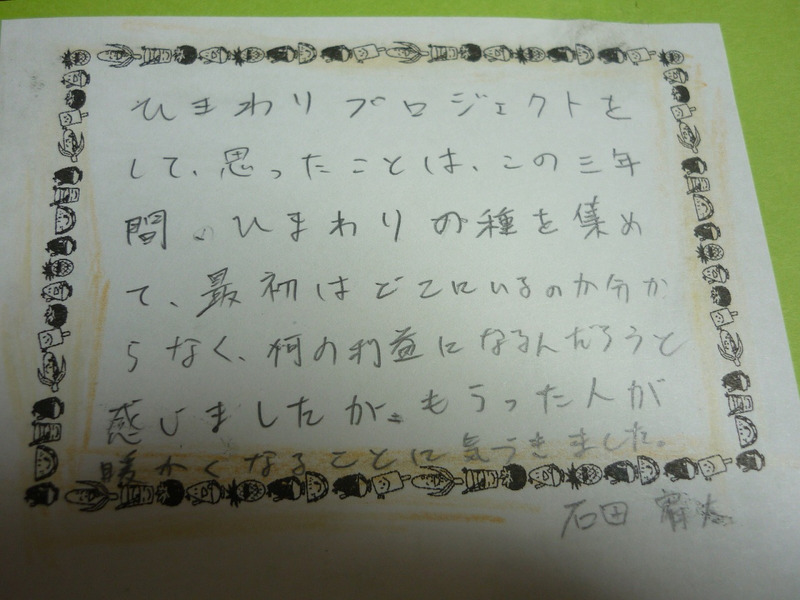 ひまわりプロジェクトを
して、思ったことは、この三年
間、ひまわりの種を集め
て、最初はどこにいるのか分か
らなく、何の利益になるんだろうと
感じましたが、もらった人が
暖かくなることに気づきました。
石田